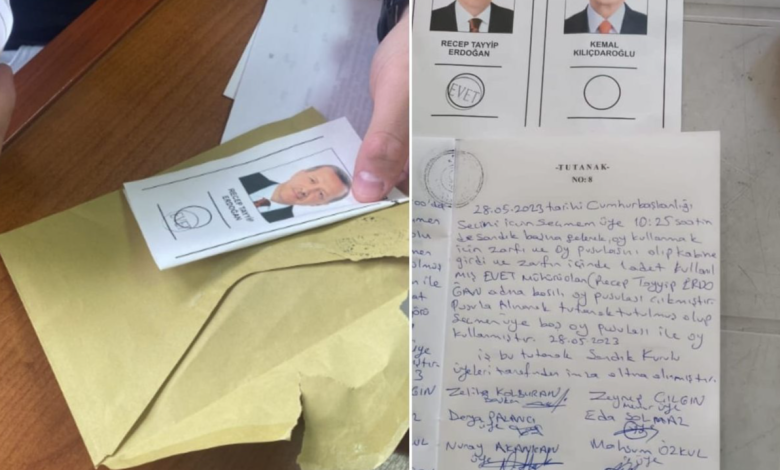 RECEP TAYYIP
ERDOĞAN
RECEP TAYYİP
ERDOĞAN
KEMAL
KILIÇDAROĞLU
EVET
-TUTANAK-
NO: 8
28.05.2023 tarihi Cumhurbaşkanlığı
Seçimi için Seçmen üye 10:25 saatin
de Sandık başına gelerek, oy kullanmak
için zarfı ve oy pusulasını alıp kabine
girdi ve zarfın içinde 1 adet kullanıl
mış EVET mühürü olan (Recep Tayyip ERDO
ĞAN adına basılı oy pusulası çıkmıştır.
Pusula Alınarak tutanak tutulmuş olup
Seçmen üye boş oy pusulası ile oy
kullanmıştır. 28.05.2023
iş bu tutanak Sandık Kurulu
üyeleri tarafından imza altına alınmıştır.
Zeliha Zeynep ÇILGIN
üye
Deya Eda SOLMAZ
üye
Nuray Mahsum ÖZKUL
üye üye